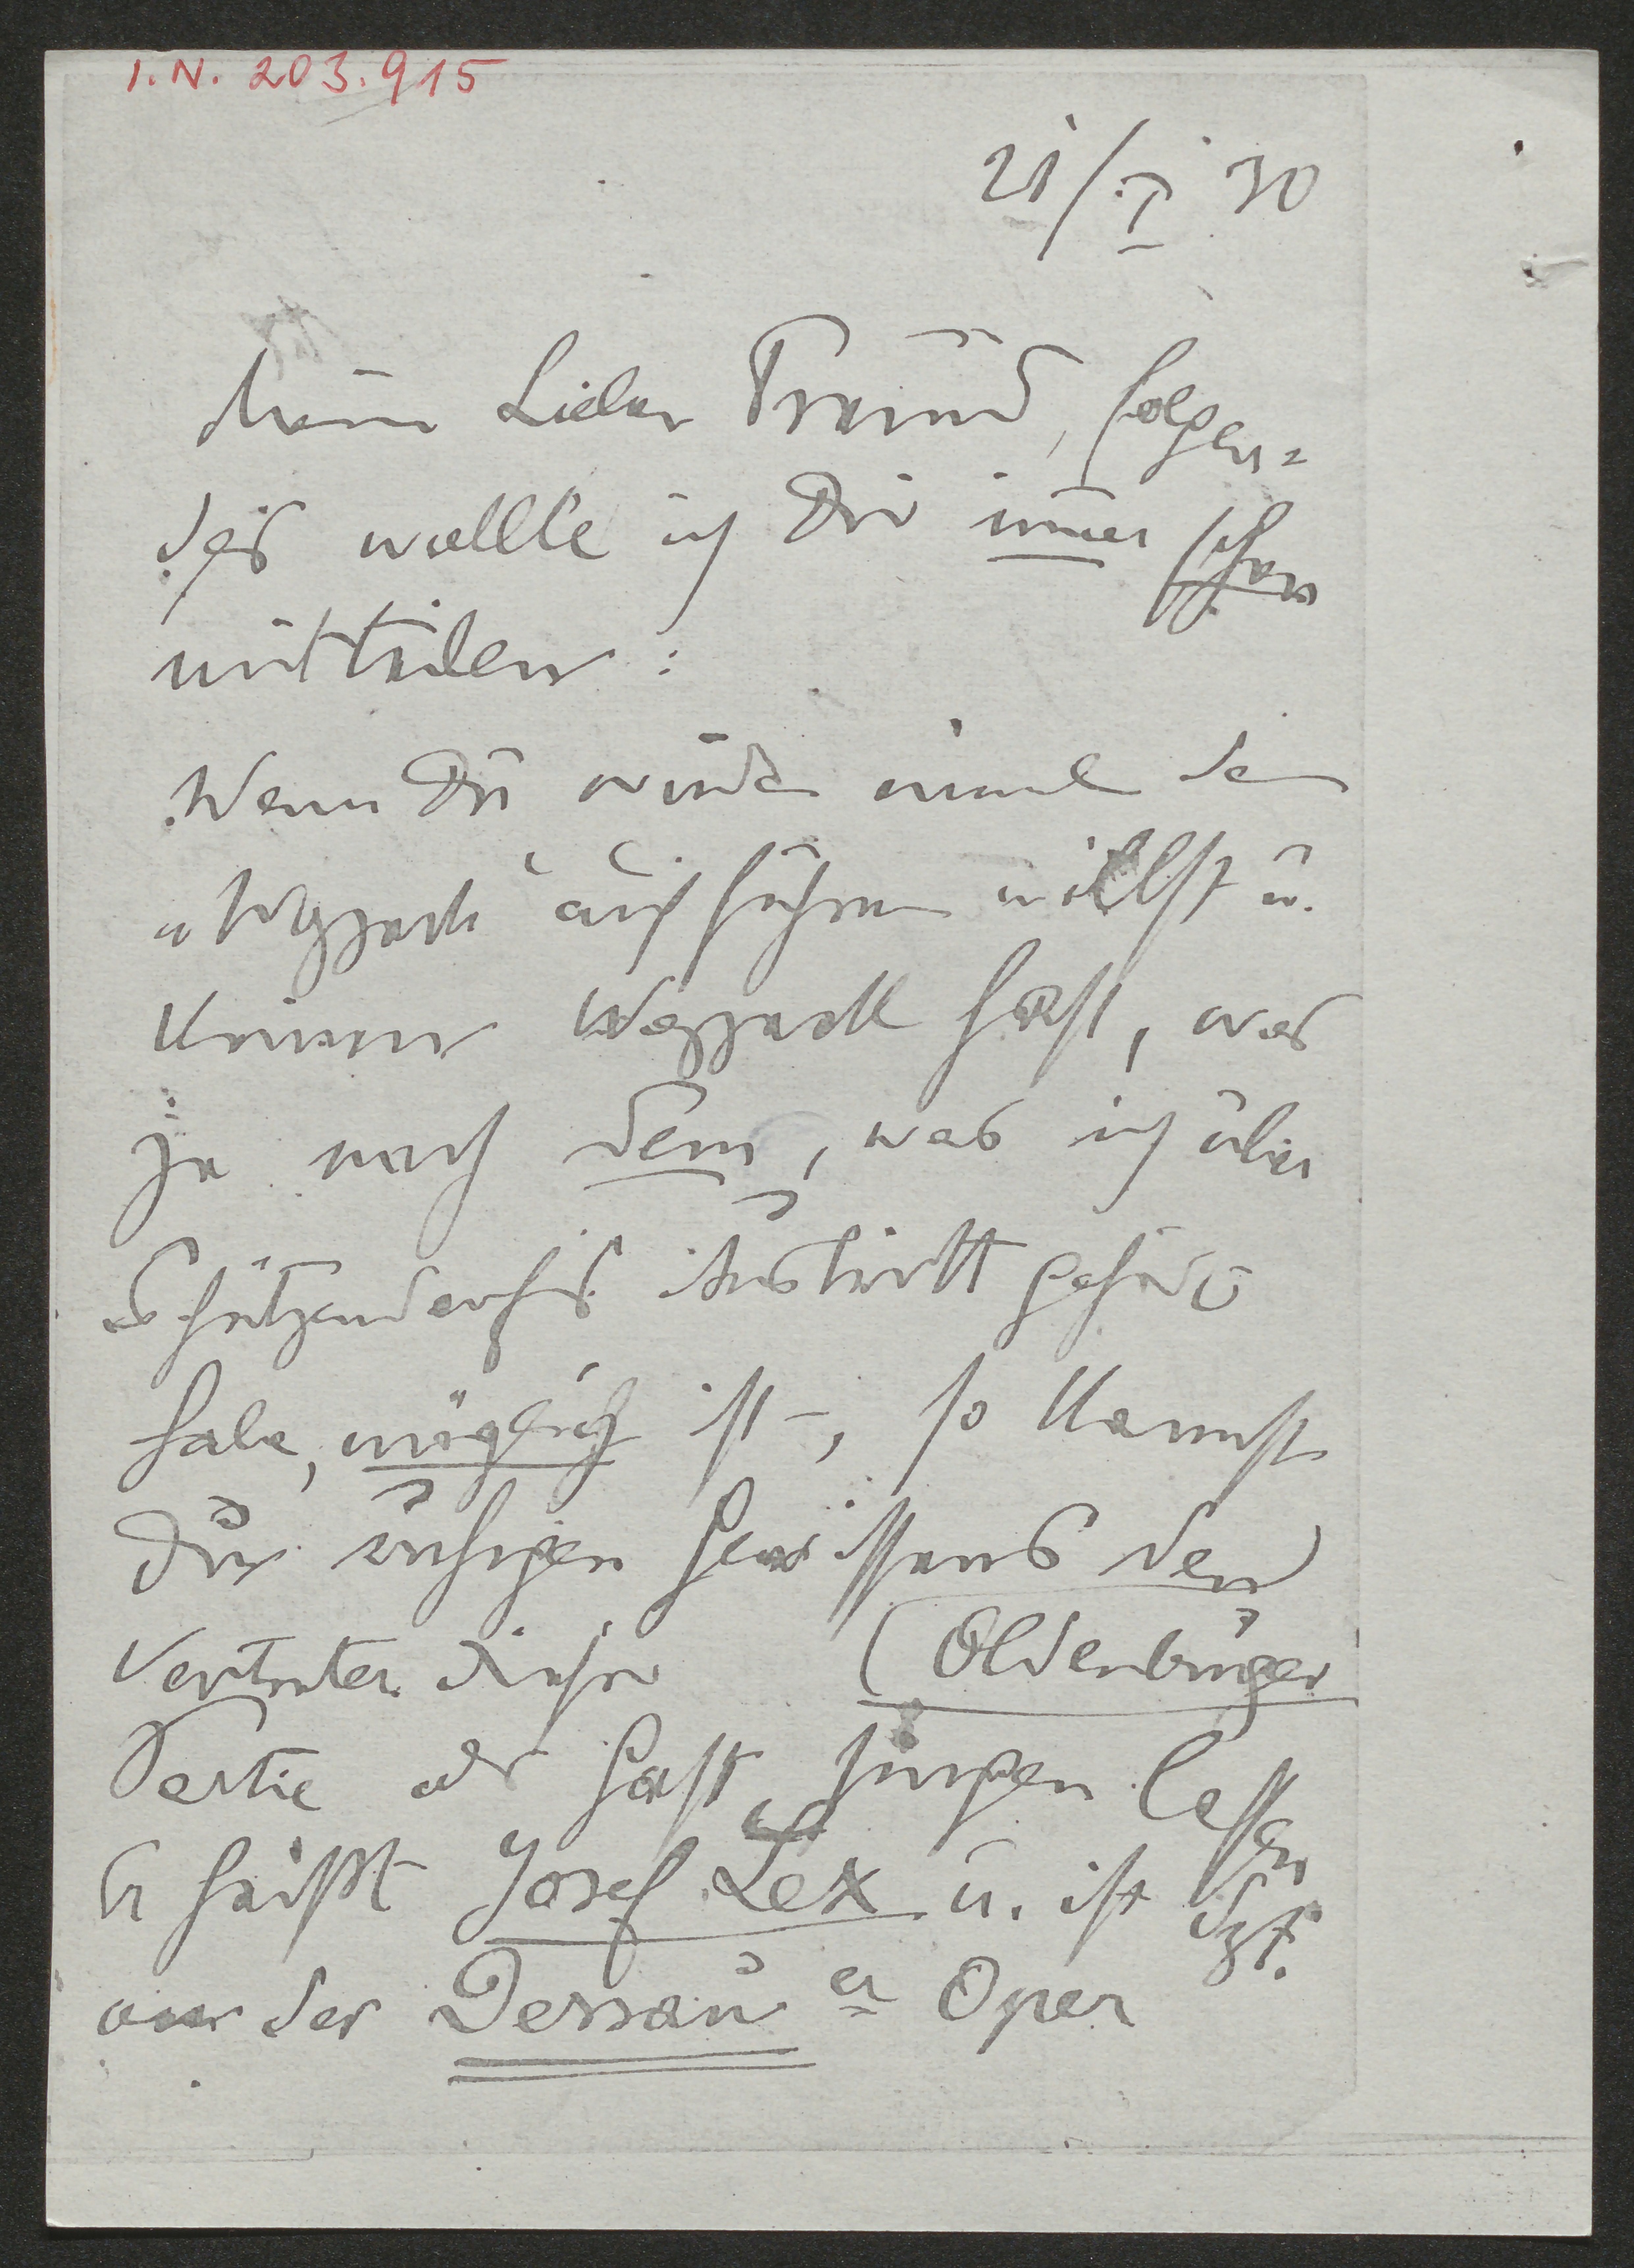 I.N. 203.915
21/I 30
Mein lieber Freund, folgen=
des wollte ich Dir immer schon
mitteilen:
Wenn Du wieder einmal den
„Wozzeck" aufführen willst u.
keinen Wozzeck hast, was
ja nach dem, was ich über
Schützendorfs Austritt gehört
habe, möglich ist –, so kannst
Du ruhigen Gewissens den
Vertreter dieser (Oldenburger
Partie als Gast singen lassen
Er heißt Josef Lex u. ist dzt.
an der Dessauer Oper